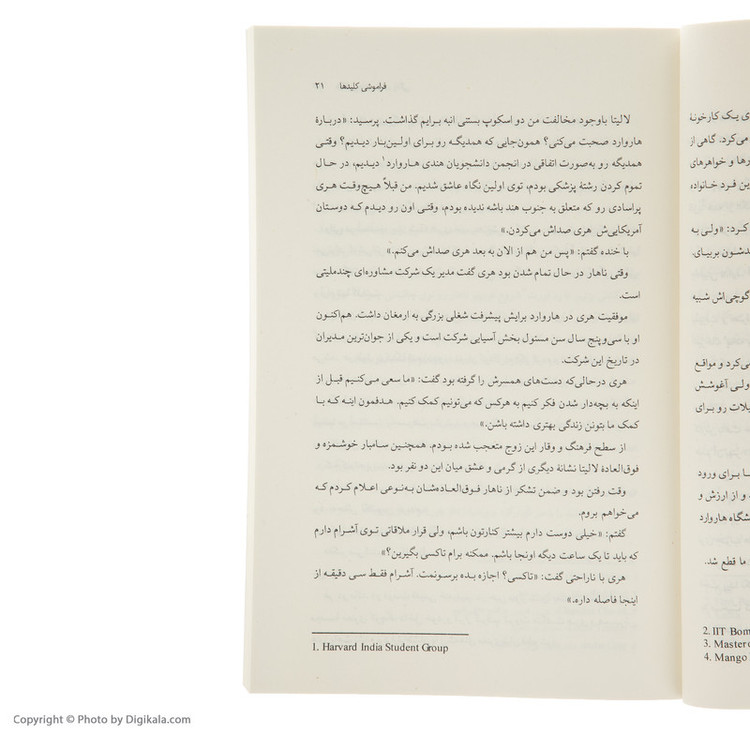 فراموشی کلیدها ۲۱
لالیتا باوجود مخالفت من دو اسکوپ بستنی انبه برایم گذاشت. پرسید: «دربارهٔ
هاروارد صحبت می‌کنی؟ همون‌جایی که همدیگه رو برای اولین‌بار دیدیم؟ وقتی
همدیگه رو به‌صورت اتفاقی در انجمن دانشجویان هندی هاروارد۱ دیدیم، در حال
تموم کردن رشتهٔ پزشکی بودم، توی اولین نگاه عاشق شدیم. من قبلاً هیچ‌وقت هری
پراسادی رو که متعلق به جنوب هند باشه ندیده بودم، وقتی اون رو دیدم که دوستان
آمریکایی‌ش هری صداش می‌کردن.»
با خنده گفتم: «پس من هم از الان به بعد هری صداش می‌کنم.»
وقتی ناهار در حال تمام شدن بود هری گفت مدیر یک شرکت مشاوره‌ای چندملیتی
است.
موفقیت هری در هاروارد برایش پیشرفت شغلی بزرگی به ارمغان داشت. هم‌اکنون
او با سی‌وپنج سال سن مسئول بخش آسیایی شرکت است و یکی از جوان‌ترین مدیران
در تاریخ این شرکت.
هری درحالی‌که دست‌های همسرش را گرفته بود گفت: «ما سعی می‌کنیم قبل از
اینکه به بچه‌دار شدن فکر کنیم به هرکس که می‌تونیم کمک کنیم. هدفمون اینه که با
کمک ما بتونن زندگی بهتری داشته باشن.»
از سطح فرهنگ و وقار این زوج متعجب شده بودم. همچنین سامبار خوشمزه و
فوق‌العادهٔ لالیتا نشانهٔ دیگری از گرمی و عشق میان این دو نفر بود.
وقت رفتن بود و ضمن تشکر از ناهار فوق‌العاده‌شان به‌نوعی اعلام کردم که
می‌خواهم بروم.
گفتم: «خیلی دوست دارم بیشتر کنارتون باشم، ولی قرار ملاقاتی توی آشرام دارم
که باید تا یک ساعت دیگه اونجا باشم. ممکنه برام تاکسی بگیرین؟»
هری با ناراحتی گفت: «تاکسی؟ اجازه بده برسونمت. آشرام فقط سی دقیقه از
اینجا فاصله داره.»
1. Harvard India Student Group
ی یک کارخونهٔ
می‌کرد. گاهی از
رها و خواهرهای
ین فرد خانواده
کرد: «ولی به
دشون بربیای.
گوچی‌اش شبیه
ی‌کرد و مواقع
ولی آغوشش
یلات رو برای
ا برای ورود
و از ارزش و
شگاه هاروارد
ما قطع شد.
2. IIT Bom
3. Master
4. Mango
Copyright © Photo by Digikala.com